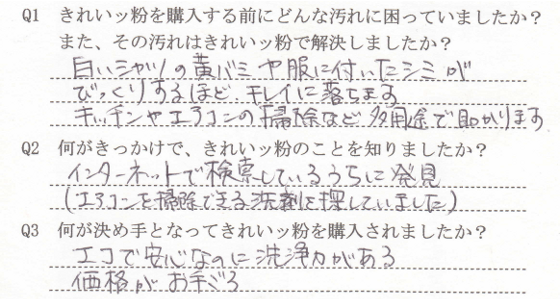 Q1 きれいッ粉を購入する前にどんな汚れに困っていましたか？
また、その汚れはきれいッ粉で解決しましたか？
白いシャツの黄バミや服に付いたシミが
びっくりするほど、キレイに落ちます
キッチンやエアコンの掃除など多用途で助かります
Q2 何がきっかけで、きれいッ粉のことを知りましたか？
インターネットで検索しているうちに発見
(エアコンを掃除できる洗剤を探していました)
Q3 何が決め手となってきれいッ粉を購入されましたか？
エコで安心なのに洗浄力がある
価格がお手ごろ